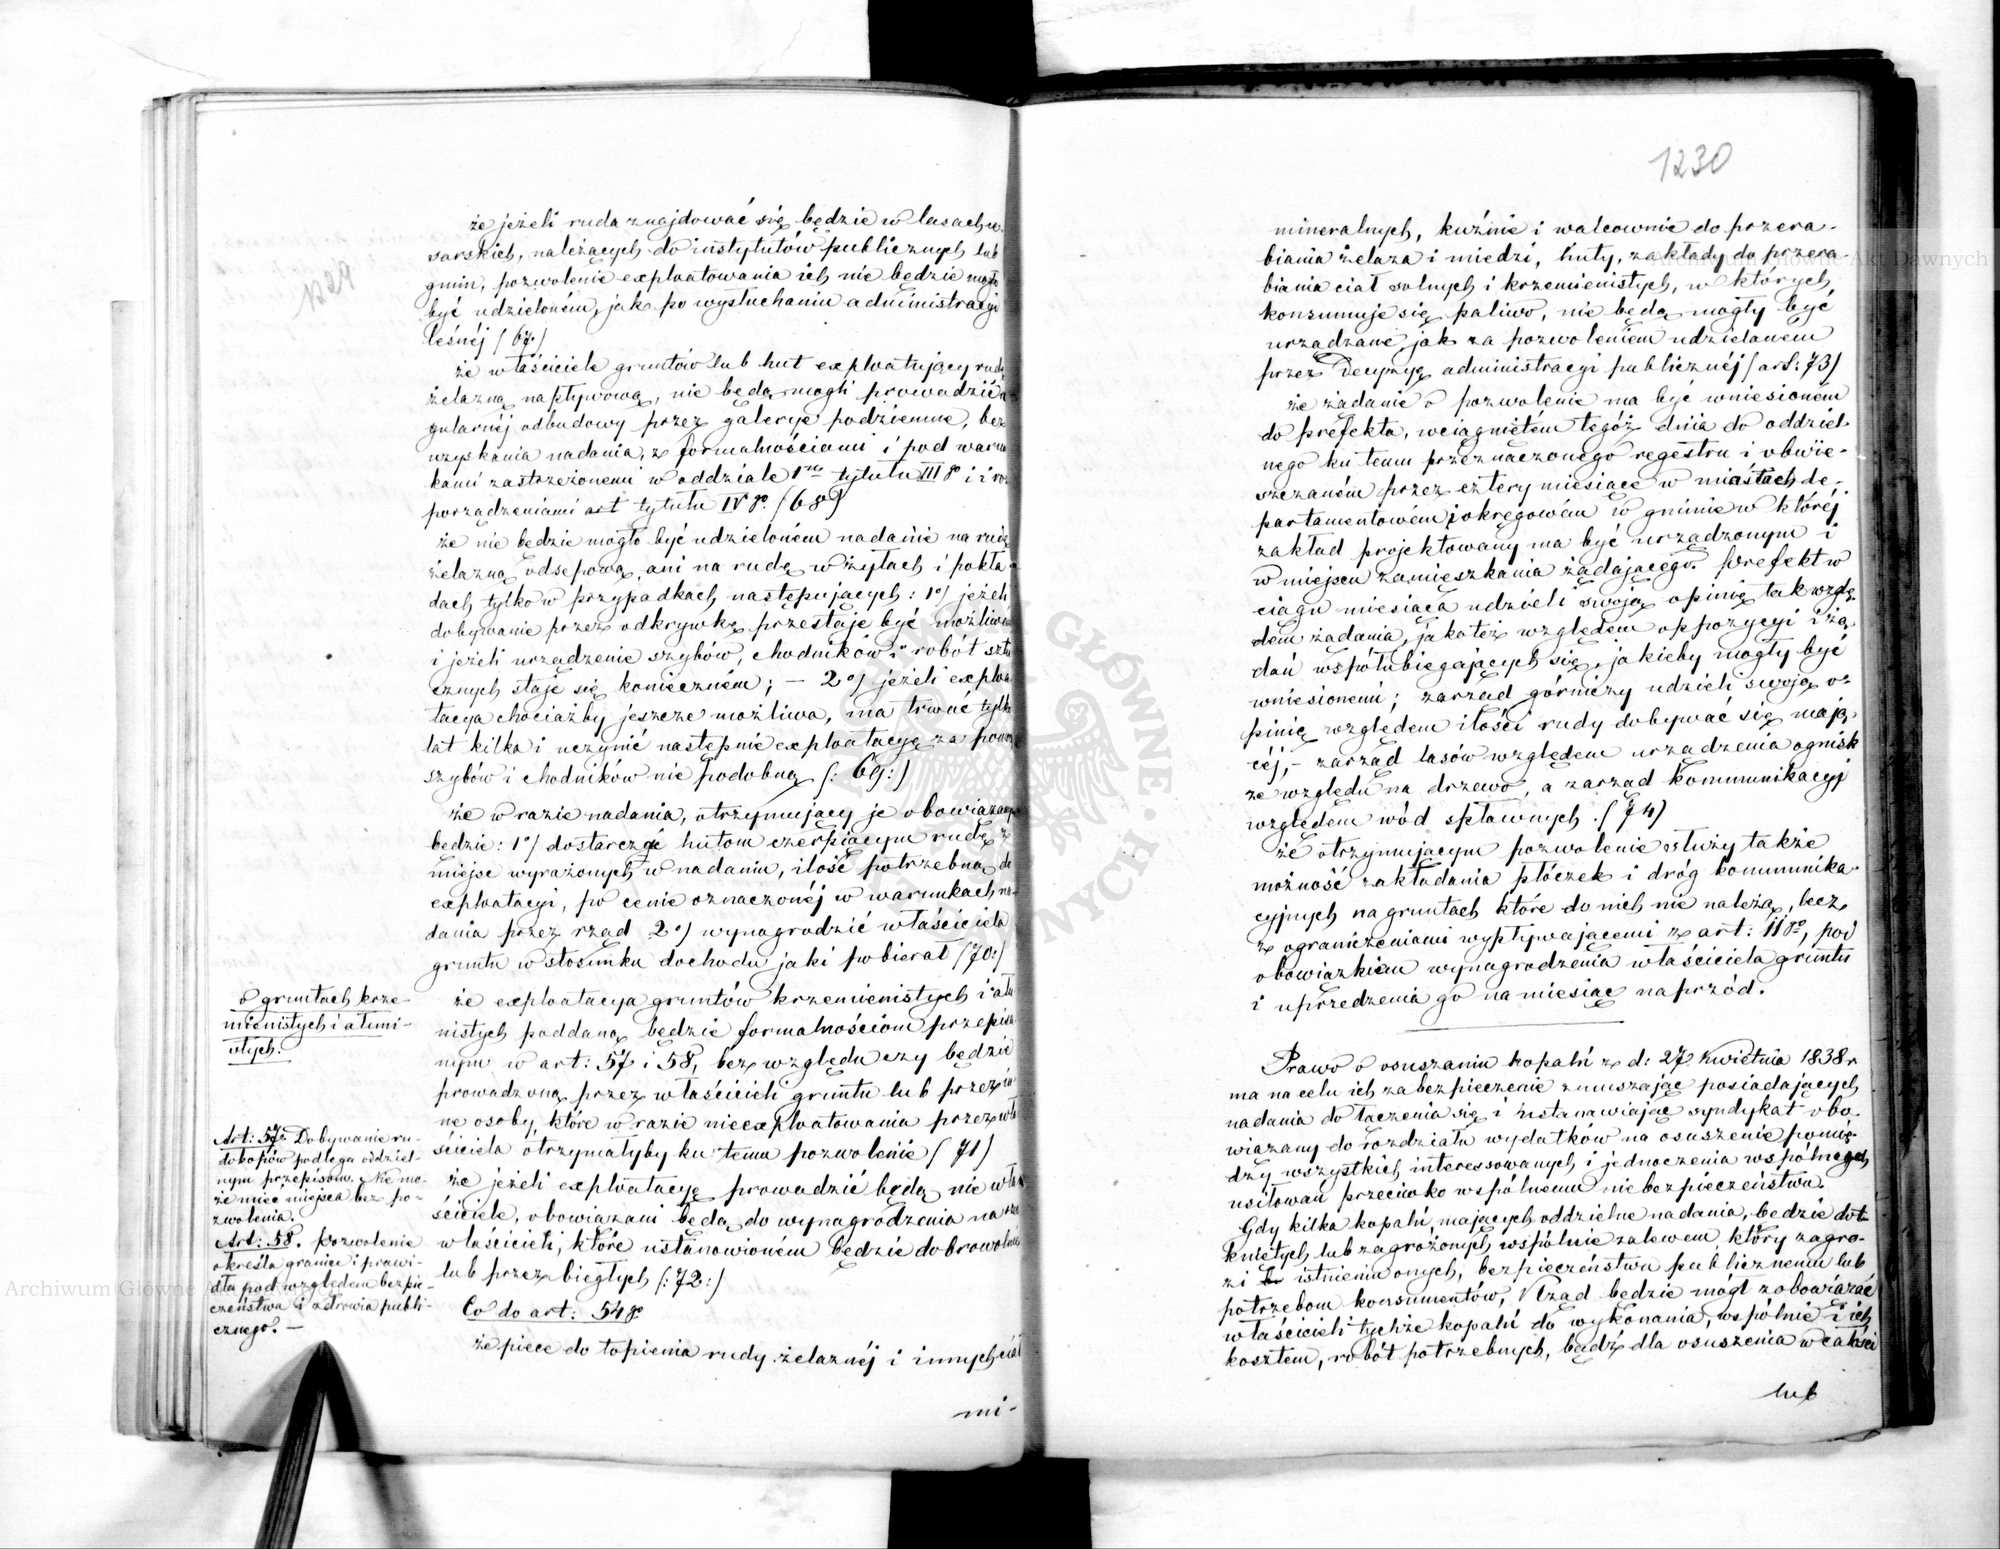 że jeżeli ruda znajdować się będzie w lasach ce
sarskich, należących do instytutów publicznych lub
gmin, pozwolenie exploatowania ich nie będzie mogło
być udzieloném, jak po wysłuchaniu administracyi
leśnéj (67)
że właściciele gruntów lub hut exploatujący rudę
żelazną napływową, nie będą mogli prowadzić re
gularnéj odbudowy przez galerye podziemne, bez
uzyskania nadania, z formalnościami i pod warun
kami zastrzeżonemi w oddziale 1m tytułu III go i i roz
porządzeniami art tytułu IV go. (68)
że nie będzie mogło być udzieloném nadanie na rudę
żelazną odsepową, ani na rudę w żyłach i pokła
dach, tylko w przypadkach następujących: 1o) jeżeli
dobywanie przez odkrywkę przestaje być możliwém
i jeżeli urządzenie szybów, chodników i robót sztu
cznych staje się konieczném; – 2o) jeżeli exploa
tacya chociażby jeszcze możliwa, ma trwać tylko
lat kilka i uczynić następnie exploatacyę za pomocą
szybów i chodników nie podobną (: 69:)
że w razie nadania, otrzymujący je obowiązany
będzie: 1o) dostarczyć hutom czerpiącym rudę z
miejsc wyrażonych w nadaniu, ilość potrzebną do
exploatacyi, po cenie oznaczonéj w warunkach na-
dania przez rząd 2o) wynagrodzić właściciela
gruntu w stosunku dochodu jaki pobierał (70:)
o gruntach krze-
mienistych i ałuni-
stych.
że exploatacya gruntów krzemienistych i ału
nistych poddaną będzie formalnościom przepisa
nym w art: 57 i 58, bez względu czy będzie
prowadzoną przez właścicieli gruntu lub przez in
ne osoby, które w razie nieexploatowania przez wła
ściciela otrzymałyby ku temu pozwolenie (71)
że jeżeli exploatacyę prowadzić będą nie wła
ściciele, obowiązani będą do wynagrodzenia na rzecz
właścicieli, które ustanowioném będzie dobrowolnie
lub przez biegłych (:72:)
Co do art: 54 go
że piece do topienia rudy żelaznéj i innych ciał
mi-
Art: 57. Dobywanie ru-
dokopów podlega oddziel-
nym przepisom. Nie mo-
że mieć miejsca bez po-
zwolenia.
Art: 58. Pozwolenie
określa granice i prawi-
dła pod względem bezpie-
czeństwa i zdrowia publi-
cznego. –
1230
mineralnych, kuźnie i walcownie do przera-
biania żelaza i miedzi, huty, zakłady do przera-
biania ciał solnych i krzemienistych, w których
konsumuje się paliwo, nie będą mogły być
urządzane, jak za pozwoleniem udzielanem
przez Decyzyę administracyi publicznéj (art: 73)
że żądanie o pozwolenie ma być wniesionem
do prefekta, wciągniętém tegóż dnia do oddziel-
nego ku temu przeznaczonego regestru i obwie-
szczaném przez cztery miesiące w miastach de-
partamentowém i okręgowém w gminie w któréj
zakład projektowany ma być urządzonym i
w miejscu zamieszkania żądającego. Prefekt w
ciągu miesiąca udzieli swoją opinię tak wzglę-
dem żądania, jako też względem oppozycyi i żą
dań współubiegających się, jakieby mogły być
wniesionemi; zarząd górniczy udzieli swoją o-
pinię względem ilości rudy dobywać się mają-
céj, – zarząd lasów względem urządzenia ognisk
ze względu na drzewo, a zarząd kommunikacyj
względem wód spławnych. (74)
że otrzymującym pozwolenie służy także
możność zakładania płóczek i dróg kommunika-
cyjnych na gruntach które do nich nie należą, lecz
z ograniczeniami wypływającemi z art: 11 go, pod
obowiązkiem wynagrodzenia właściciela gruntu
i uprzedzenia go na miesiąc naprzód.
Prawo o osuszaniu kopalń z d: 27 Kwietnia 1838 r
ma na celu ich zabezpieczenie zmuszając posiadających
nadania do łączenia się i ustanawiając syndykat obo-
wiązany do rozdziału wydatków na osuszenie pomię-
dzy wszystkich interessowanych i jednoczenia wspólnych
usiłowań przeciwko wspólnemu niebezpieczeństwu.
Gdy kilka kopalń, mających oddzielne nadania, będzie dot-
kniętych lub zagrożonych wspólnie zalewem, który zagro-
zi istnieniu onych, bezpieczeństwu publicznemu lub
potrzebom konsumentów, Rząd będzie mógł zobowiązać
właścicieli tychże kopalń do wykonania, wspólnie i ich
kosztem, robót potrzebnych, bądź dla osuszenia w całości
lub
Archiwum Główne Akt Dawnych